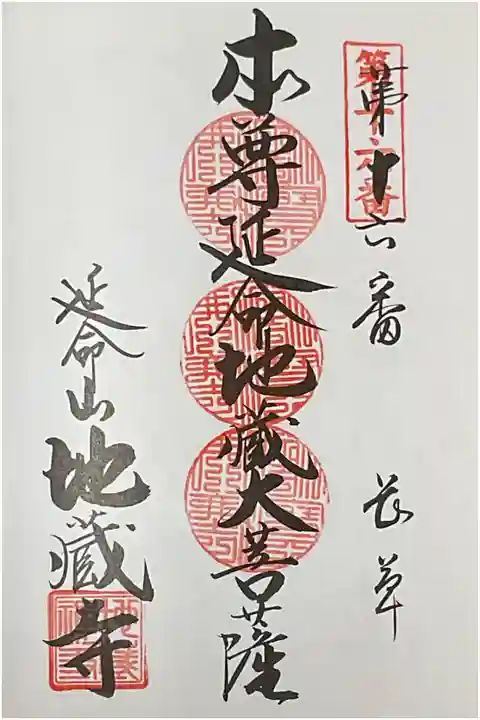 第十六番
第十六番 長草
本尊延命地蔵大菩薩
延命山地蔵寺